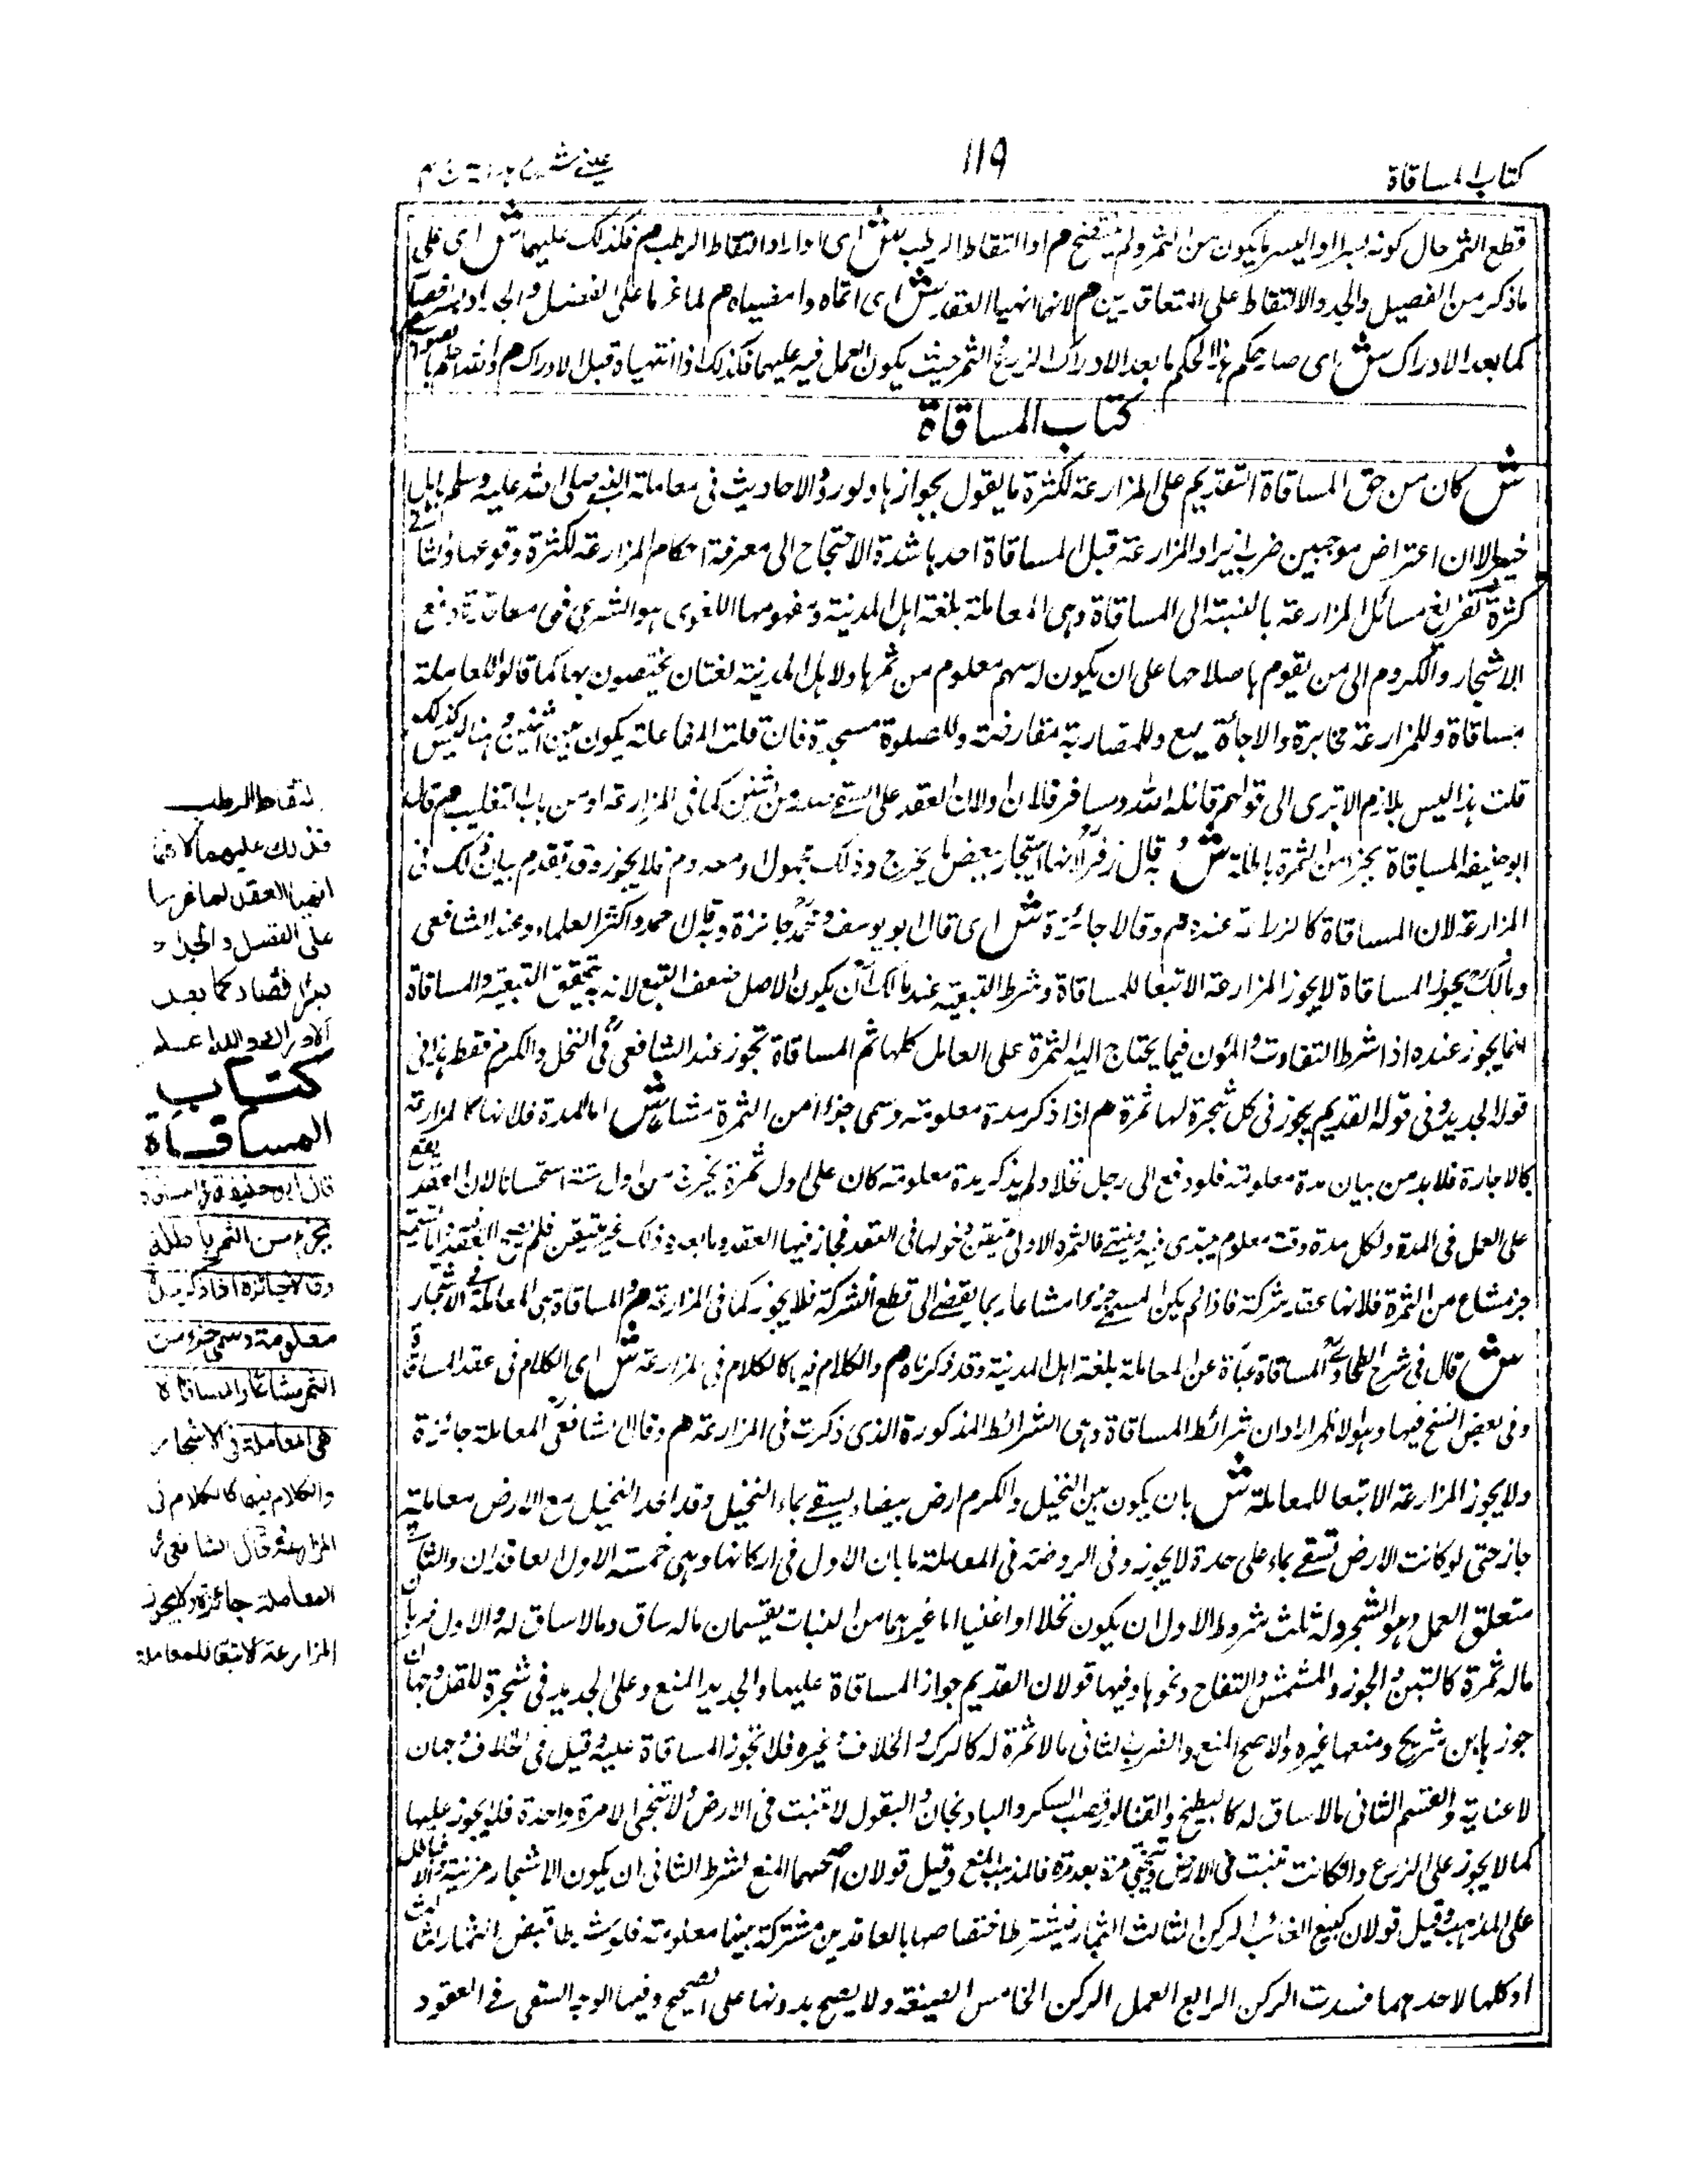 كتاب المساقاة
119
قطع الثمر حال كونه بسرا او البسر ما يكون من الثمر ولم ينضج هم او التقاط الرطب ش اى او ارادا التقاط الرطب هم فكذلك عليهما ش اى على
ما ذكر من الفصيل والجد والالتقاط على المتعاقدين هم لانهما انهيا العقد ش اى اتماه وامضياه هم لما عزما على الفصل والجداد بسرا فصار
كما بعد الادراك ش اى صار حكم هذا الحكم ما بعد الادراك الزرع الثمر حيث يكون العمل فيه عليهما فكذلك اذا انتهياه قبل الادراك هم والله اعلم بالصواب
كتاب المساقاة
ش كان من حق المساقاة التقديم على المزارعة لكثرة ما يقول بجوازها ولورود الاحاديث فى معاملة النبى صلى الله عليه وسلم باهل
خيبر الا ان اعتراض موجبين ضرب ايراد المزارعة قبل المساقاة احدها شدة الاحتجاج الى معرفة احكام المزارعة لكثرة وقوعها والثانى
كثرة تفريع مسائل المزارعة بالنسبة الى المساقاة وهى المعاملة بلغة اهل المدينة ومفهومها اللغوى هو الشرعى فهى معاقدة دفع
الاشجار والكروم الى من يقوم باصلاحها على ان يكون له سهم معلوم من ثمرها ولاهل المدينة لغتان يختصون بها كما قالوا للمعاملة
مساقاة وللمزارعة مخابرة والاجاة بيع وللمضاربة مقارضة وللصلوة سجدة فان قلت المفاعلة يكون بين اثنين وهنا ليس كذلك
قلت هذا ليس بلازم الا ترى الى قولهم قاتله الله وسافر فلان او لان العقد على السقى صدر من اثنين كما فى المزارعة او من باب التغليب هم قال
ابو حنيفة المساقاة بجزء من الثمرة باطلة ش وبه قال زفر لانها استيجار ببعض ما يخرج وذلك مجهول او معدوم فلا يجوز وقد تقدم بيان ذلك فى
المزارعة لان المساقاة كالمزارعة عنده هم وقالا جائزة ش اى قال ابو يوسف ومحمد جائزة وبه قال احمد واكثر العلماء وعند الشافعى
ومالك يجوز المساقاة لا يجوز المزارعة الا تبعا للمساقاة وشرط التبعية عند مالك ان يكون الاصل ضعف التبع لانه به يتحقق التبعية والمساقاة
انما يجوز عنده اذا شرطا التفاوت والمؤن فيما يحتاج اليه الثمرة على العامل كلها ثم المساقاة تجوز عند الشافعى فى النخل والكرم فقط هذا فى
قوله الجديد وفى قوله القديم يجوز فى كل شجرة لها ثمرة هم اذا ذكر مدة معلومة وسمى جزءا من الثمرة مشاعا ش اما المدة فلانها كالمزارعة
كالاجارة فلا بد من بيان مدة معلومة فلو دفع الى رجل نخلا ولم يذكر مدة معلومة كان على اول ثمرة يخرج من اول سنة استحسانا لان العقد يقع
على العمل فى المدة ولكل مدة وقت معلوم يبتدى فيه وينتهى فالثمرة الاولى متيقن دخولها فى العقد فجاز فيها العقد وما بعد ذلك غير متيقن فلم يصح العقد
جزء مشاع من الثمرة فلانها عقد شركة فاذا لم يكن المسمى جزءا مشاعا ربما يفضى الى قطع الشركة فلا يجوز كما فى المزارعة هم والمساقاة هى المعاملة فى الاشجار
ش قال فى شرح الطحاوى المساقاة عبارة عن المعاملة بلغة اهل المدينة وقد ذكرناه هم والكلام فيها كالكلام فى المزارعة ش اى الكلام فى عقد المساقاة
وفى بعض النسخ فيها وهو الاظهر اراد ان شرائط المساقاة هى الشرائط المذكورة الذى ذكرت فى المزارعة هم وقال الشافعى المعاملة جائزة
ولا يجوز المزارعة الا تبعا للمعاملة ش بان يكون بين النخيل والكرم ارض بيضاء يسقى بماء النخيل وقد اخذ النخيل مع الارض معاملة
جاز حتى لو كانت الارض تسقى بماء على حدة لا يجوز وفى الروضة فى المعاملة بابان الاول فى اركانها وهى خمسة الاول العاقدان والثانى
متعلق العمل وهو الشجر وله ثلث شروط الاول ان يكون نخلا او عنبا اما غيرهما من النبات يقسمان ماله ساق وما لا ساق له والاول ضربان
ماله ثمرة كالتين والجوز والمشمش والتفاح ونحوها وفيها قولان القديم جواز المساقاة عليها والجديد المنع وعلى الجديد فى شجرة المقل وجهان
جوزها ابن شريح ومنعها غيره والاصح المنع والضرب الثانى ما لا ثمرة له كالدلب والخلاف وغيره فلا تجوز المساقاة عليه وقيل فى الخلاف وجهان
لا عناية والقسم الثانى ما لا ساق له كالبطيخ والقثا وقصب السكر والباذنجان والبقول لا تنبت فى الارض ولا تجنى الا مرة واحدة فلا يجوز عليها
كما لا يجوز على الزرع وان كانت تنبت فى الارض وتجنى مرة بعد مرة فالمذهب المنع وقيل قولان اصحهما المنع الشرط الثانى ان يكون الاشجار مرئية والا فباطل
على المذهب وقيل قولان كبيع الغائب الركن الثالث الثمار فيشترط اختصاصها بالعاقدين مشتركة بينهما معلومة فلو شرطا بعض الثمار لثالث
او كلها لاحدهما فسدت الركن الرابع العمل الركن الخامس الصيغة ولا يصح بدونها على الصحيح وفيها الوجه السقى فى العقود
لتقاط الرطب
فكذلك عليهما لانهما
انهيا العقد لما عزما
على الفصل والجداد
بسرا فصار كما بعد
الادراك والله اعلم
كتاب
المساقاة
قال ابو حنيفة المساقاة
بجزء من الثمر باطلة
وقالا جائزة اذا ذكر مدة
معلومة وسمى جزء من
الثمر مشاعا والمساقاة
هى المعاملة فى الاشجار
والكلام فيها كالكلام فى
المزارعة وقال الشافعى
المعاملة جائزة ولا يجوز
المزارعة الا تبعا للمعاملة